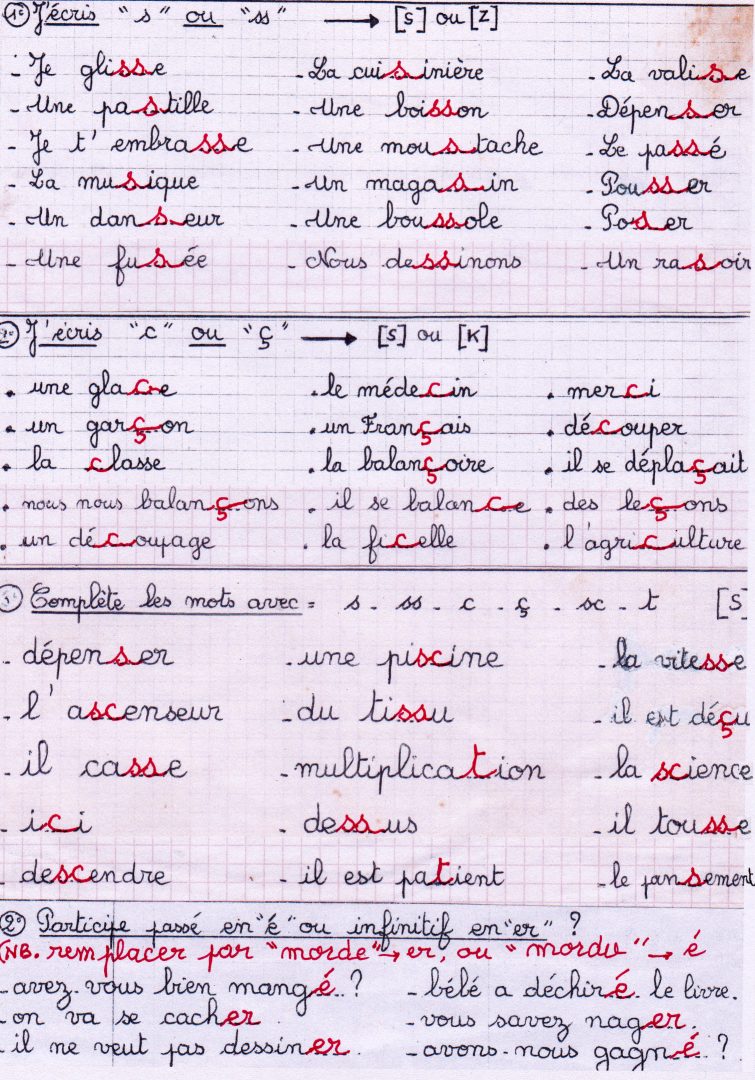 1° J'écris "s" ou "ss" → [s] ou [z]
- Je glisse - La cuisinière - La valise
- Une pastille - Une boisson - Dépenser
- Je t'embrasse - Une moustache - Le passé
- La musique - Un magasin - Pousser
- Un danseur - Une boussole - Poser
- Une fusée - Nous dessinons - Un rasoir
2° J'écris "c" ou "ç" → [s] ou [K]
. une glace . le médecin . merci
. un garçon . un Français . découper
. la classe . la balançoire . il se déplaçait
. nous nous balançons . il se balance . des leçons
. un découpage . la ficelle . l'agriculture
3° Complète les mots avec = s - ss - c - ç - sc - t [s]
- dépenser - une piscine - la vitesse
- l'ascenseur - du tissu - il est déçu
- il casse - multiplication - la science
- ici - dessus - il tousse
- descendre - il est patient - le pansement
2° Participe passé en "é" ou infinitif en "er" ?
(NB. remplacer par "morde" → er, ou "mordu" → é
- avez-vous bien mangé..? - bébé a déchiré. le livre.
- on va se cacher. - vous savez nager.
- il ne veut pas dessiner. - avons-nous gagné.?